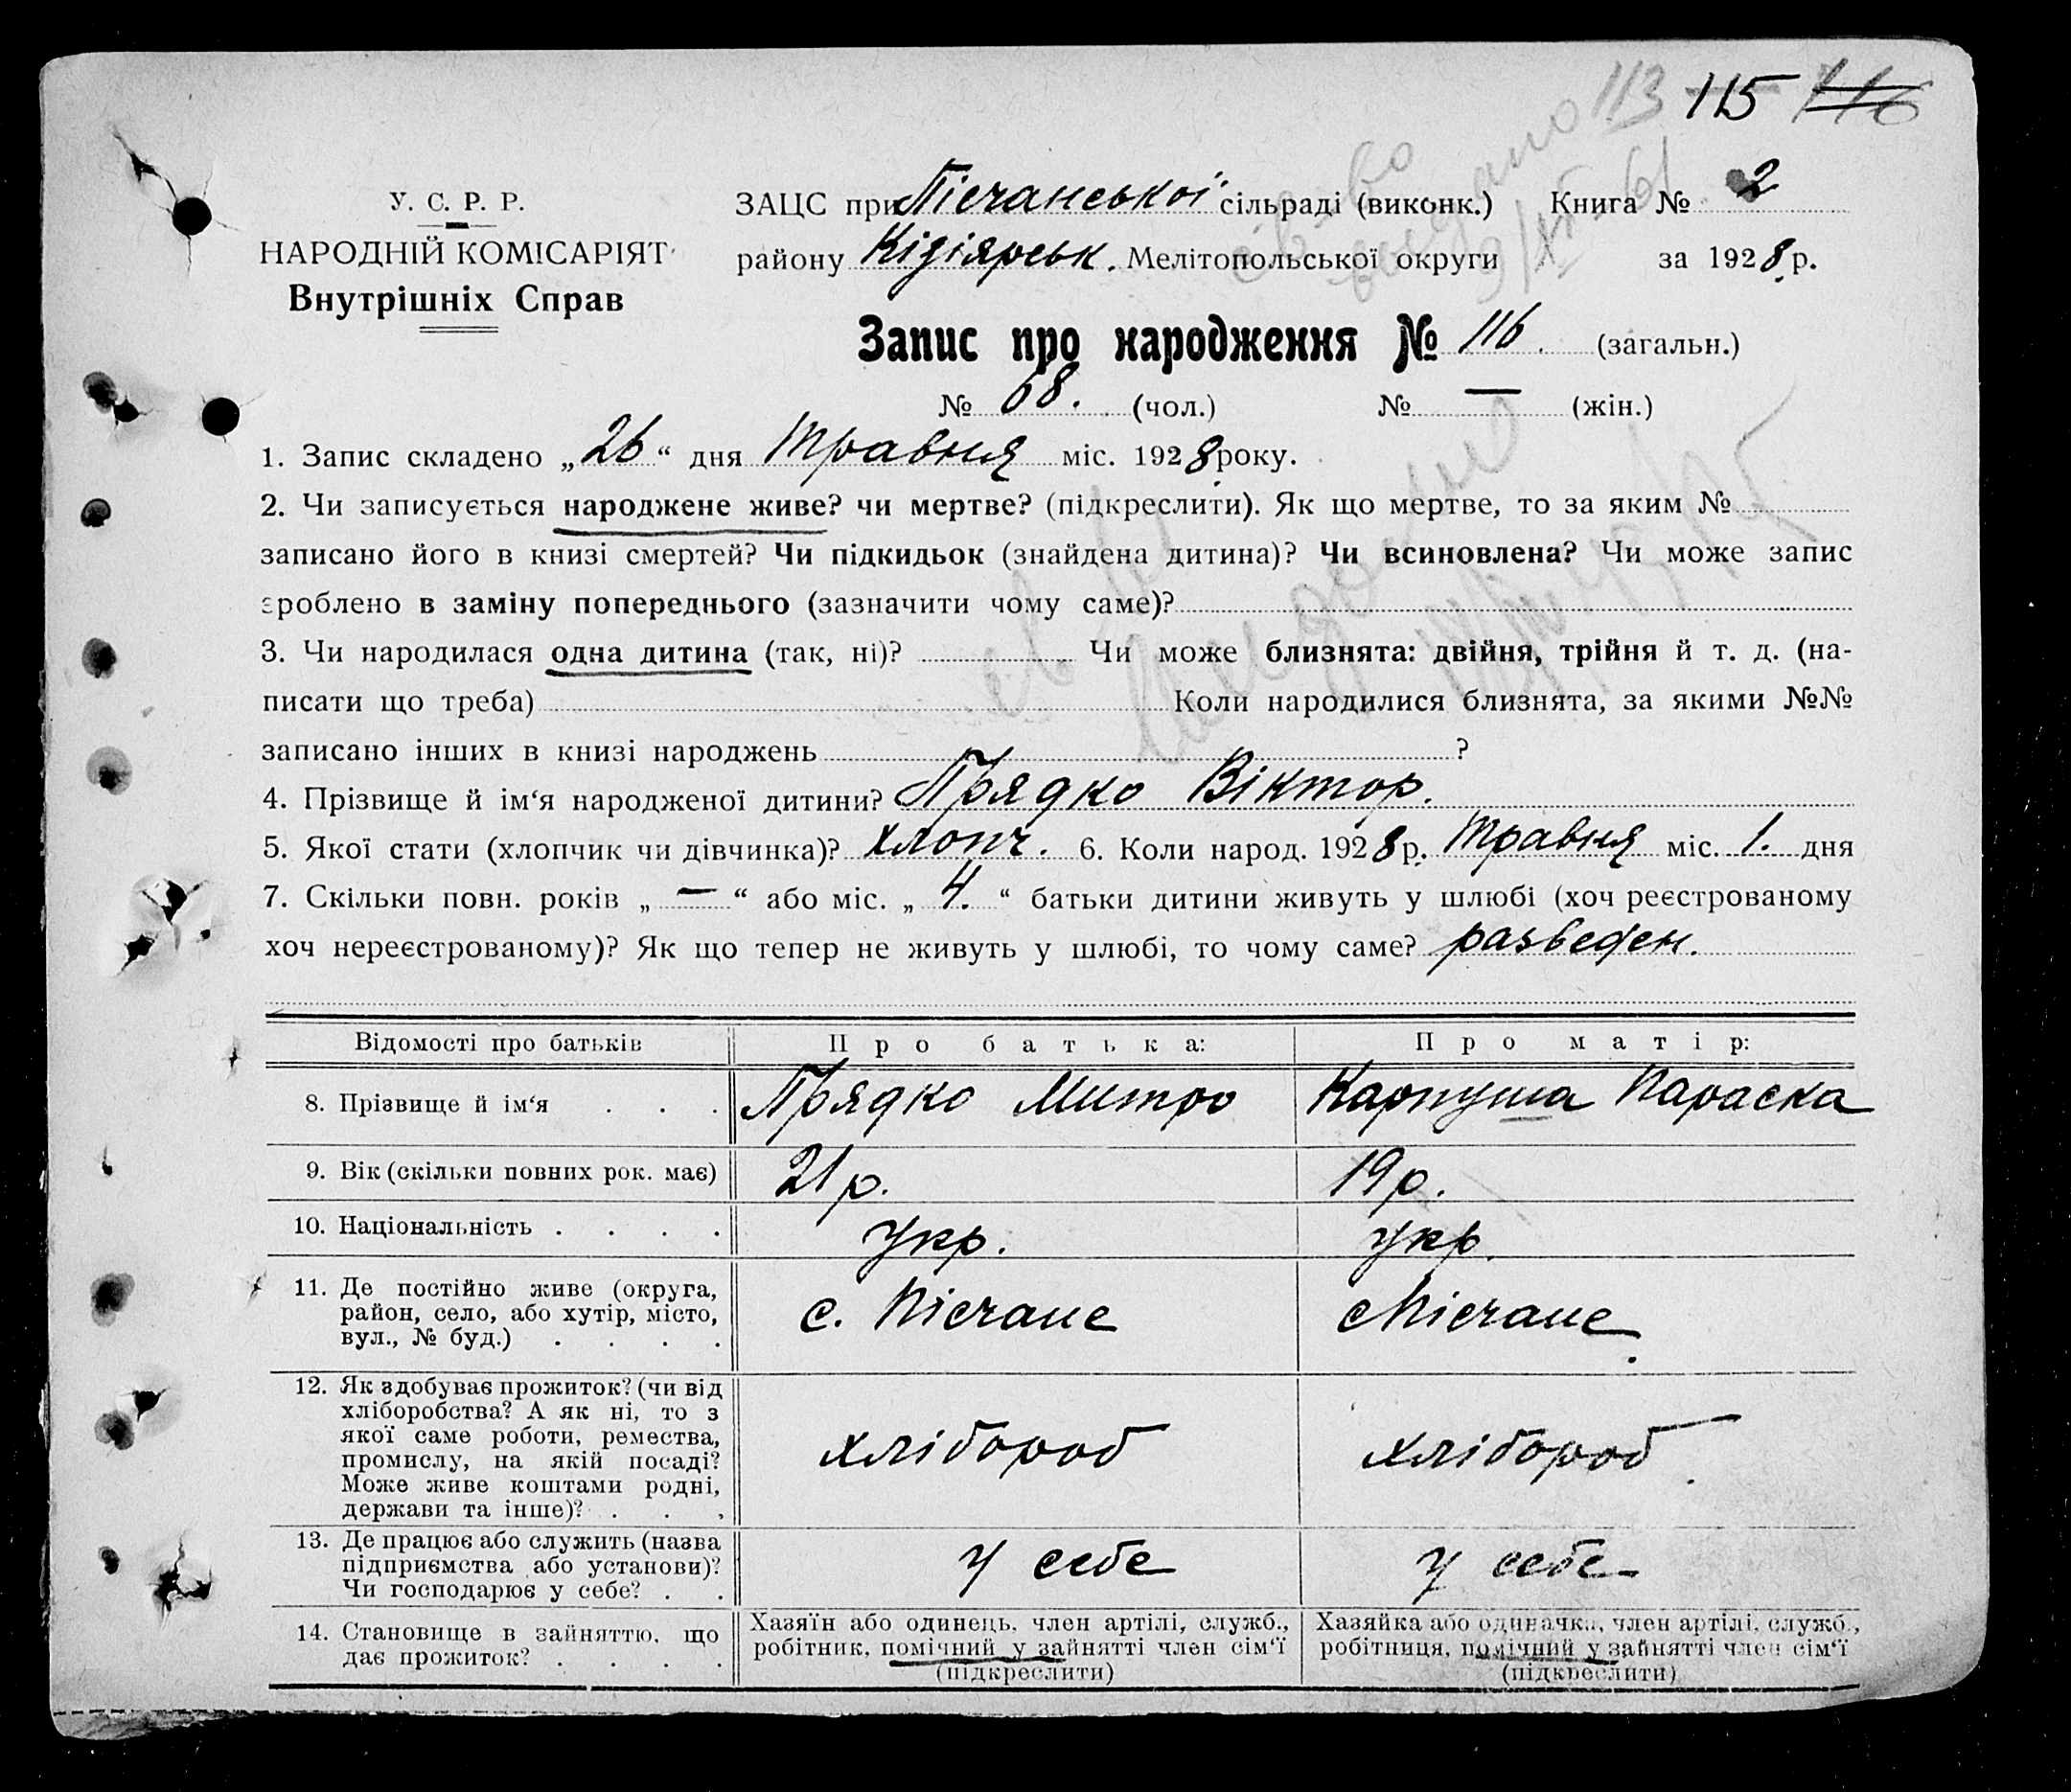 113 115 116
У. С. Р. Р.
НАРОДНІЙ КОМІСАРІЯТ
Внутрішніх Справ
ЗАЦС при Пісчанської сільраді (виконк.) Книга № 2
району Кізіярськ. Мелітопольської округи за 1928 р.
Запис про народження № 116. (загальн.)
№ 68. (чол.) № — (жін.)
1. Запис складено „26“ дня Травня міс. 1928 року.
2. Чи записується народжене живе? чи мертве? (підкреслити). Як що мертве, то за яким №
записано його в книзі смертей? Чи підкидьок (знайдена дитина)? Чи всиновлена? Чи може запис
зроблено в заміну попереднього (зазначити чому саме)?
3. Чи народилася одна дитина (так, ні)? Чи може близнята: двійня, трійня й т. д. (на-
писати що треба) Коли народилися близнята, за якими №№
записано інших в книзі народжень ?
4. Прізвище й ім‘я народженої дитини? Прядко Віктор.
5. Якої стати (хлопчик чи дівчинка)? хлопч. 6. Коли народ. 1928 р. Травня міс. 1. дня
7. Скільки повн. років „—“ або міс. „4.“ батьки дитини живуть у шлюбі (хоч реєстрованому
хоч нереєстрованому)? Як що тепер не живуть у шлюбі, то чому саме? разведен.
Відомості про батьків Про батька: Про матір:
8. Прізвище й ім‘я . . . Прядко Митро Карпуша Параска
9. Вік (скільки повних рок. має) 21 р. 19 р.
10. Національність . . . . укр. укр.
11. Де постійно живе (округа,
район, село, або хутір, місто,
вул., № буд.) . . . .
с. Пісчане с Пісчане.
12. Як здобуває прожиток? (чи від
хліборобства? А як ні, то з
якої саме роботи, ремества,
промислу, на якій посаді?
Може живе коштами родні,
держави та інше)? . . .
хлібороб хлібороб.
13. Де працює або служить (назва
підприємства або установи)?
Чи господарює у себе? . .
у себе у себе
14. Становище в зайняттю, що
дає прожиток? . . . .
Хазяїн або одинець, член артілі, служб.,
робітник, помічний у зайнятті член сім‘ї
(підкреслити)
Хазяйка або одиначка, член артілі, служб.,
робітниця, помічний у зайнятті член сім‘ї
(підкреслити)